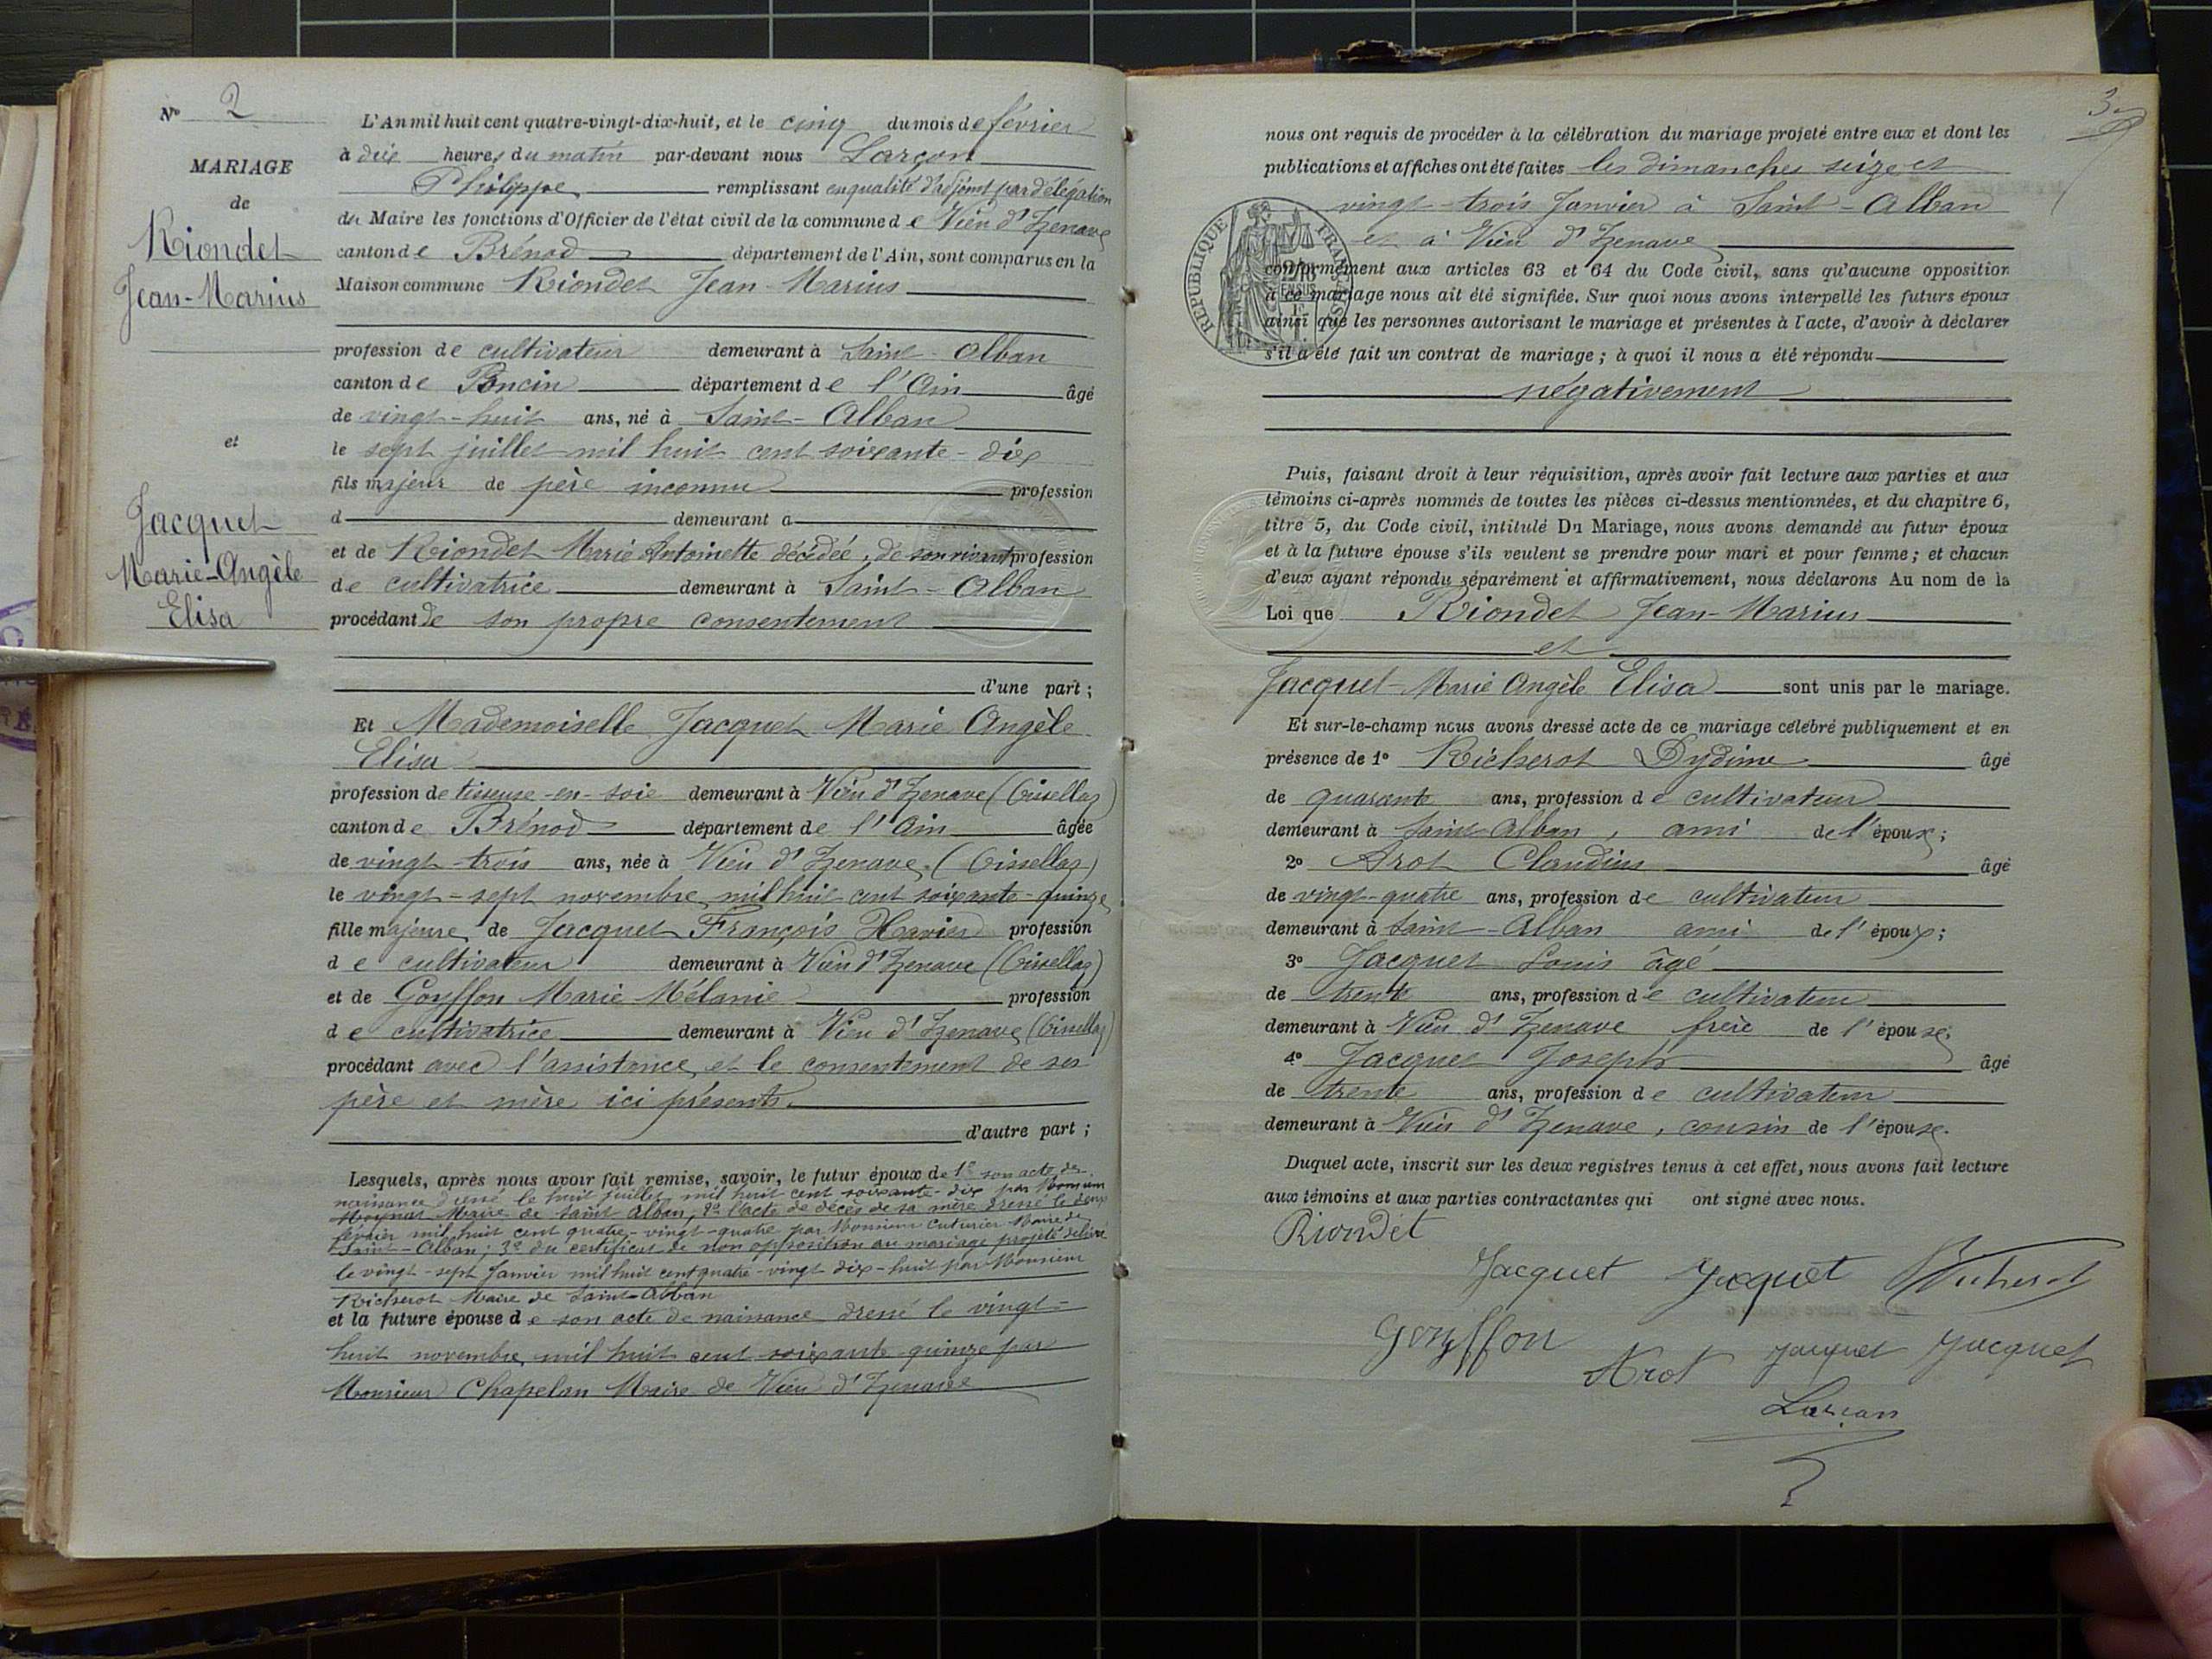 N° 2
MARIAGE
de
Riondet
Jean-Marius
et
Jacquet
Marie-Angèle
Elisa
L'An mil huit cent quatre-vingt-dix-huit, et le cinq du mois de février
à dix heures du matin par-devant nous Larçon
Philippe remplissant en qualité d'adjoint par délégation
du Maire les fonctions d'Officier de l'état civil de la commune de Vieu d'Izenave
canton de Brénod département de l'Ain, sont comparus en la
Maison commune Riondet Jean-Marius
profession de cultivateur demeurant à Saint-Alban
canton de Poncin département de l'Ain âgé
de vingt-huit ans, né à Saint-Alban
le sept juillet mil huit cent soixante-dix
fils majeur de père inconnu profession
d demeurant à
et de Riondet Marie Antoinette décédée, de son vivant profession
de cultivatrice demeurant à Saint-Alban
procédant de son propre consentement
d'une part ;
Et Mademoiselle Jacquet Marie Angèle
Elisa
profession de tisseuse-en-soie demeurant à Vieu d'Izenave (Oisellaz)
canton de Brénod département de l'Ain âgée
de vingt-trois ans, née à Vieu d'Izenave (Oisellaz)
le vingt-sept novembre mil huit cent soixante-quinze
fille majeure de Jacquet François Xavier profession
de cultivateur demeurant à Vieu d'Izenave (Oisellaz)
et de Gouffon Marie Mélanie profession
de cultivatrice demeurant à Vieu d'Izenave (Oisellaz)
procédant avec l'assistance et le consentement de ses
père et mère ici présents.
d'autre part ;
Lesquels, après nous avoir fait remise, savoir, le futur époux de 1° son acte de
naissance dressé le huit juillet mil huit cent soixante-dix par Monsieur
Maire de Saint Alban, 2° l'acte de décès de sa mère dressé le deux
février mil huit cent quatre-vingt-quatre par Monsieur Cuturier Maire de
Saint-Alban ; 3° du certificat de non opposition au mariage projeté délivré
le vingt-sept Janvier mil huit cent quatre-vingt dix-huit par Monsieur
Richerot Maire de Saint-Alban
et la future épouse de son acte de naissance dressé le vingt-
huit novembre mil huit cent soixante quinze par
Monsieur Chapelan Maire de Vieu d'Izenave
3
nous ont requis de procéder à la célébration du mariage projeté entre eux et dont les
publications et affiches ont été faites les dimanches seize et
vingt-trois Janvier à Saint-Alban
et à Vieu d'Izenave
RÉPUBLIQUE FRANÇAISE
conformément aux articles 63 et 64 du Code civil, sans qu'aucune opposition
à ce mariage nous ait été signifiée. Sur quoi nous avons interpellé les futurs époux
ainsi que les personnes autorisant le mariage et présentes à l'acte, d'avoir à déclarer
s'il a été fait un contrat de mariage ; à quoi il nous a été répondu
négativement
Puis, faisant droit à leur réquisition, après avoir fait lecture aux parties et aux
témoins ci-après nommés de toutes les pièces ci-dessus mentionnées, et du chapitre 6,
titre 5, du Code civil, intitulé Du Mariage, nous avons demandé au futur époux
et à la future épouse s'ils veulent se prendre pour mari et pour femme ; et chacun
d'eux ayant répondu séparément et affirmativement, nous déclarons Au nom de la
Loi que Riondet Jean-Marius
et
Jacquet Marie Angèle Elisa sont unis par le mariage.
Et sur-le-champ nous avons dressé acte de ce mariage célébré publiquement et en
présence de 1° Richerot Dydime âgé
de quarante ans, profession de cultivateur
demeurant à Saint-Alban, ami de l'époux ;
2° Arot Claudius âgé
de vingt-quatre ans, profession de cultivateur
demeurant à Saint-Alban ami de l'époux ;
3° Jacquet Louis âgé
de trente ans, profession de cultivateur
demeurant à Vieu d'Izenave frère de l'épouse.
4° Jacquet Joseph âgé
de trente ans, profession de cultivateur
demeurant à Vieu d'Izenave, cousin de l'épouse.
Duquel acte, inscrit sur les deux registres tenus à cet effet, nous avons fait lecture
aux témoins et aux parties contractantes qui ont signé avec nous.
Riondét
Jacquet Jacquet Richerot
Gouffon
Arot Jacquet Jacquet
Larçon